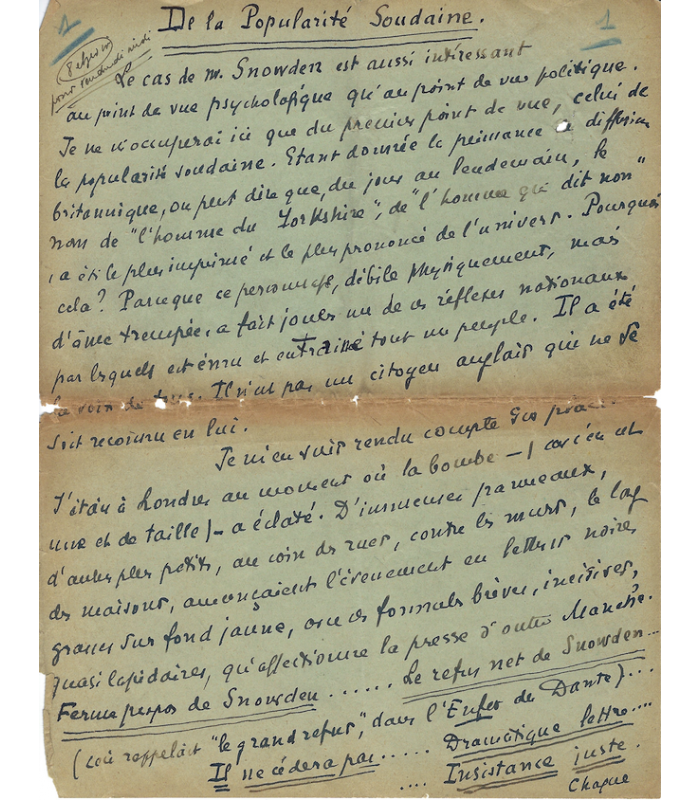 1 De la Popularité Soudaine. 1
pour vendredi midi
Le cas de M. Snowden est aussi intéressant
au point de vue psychologique qu'au point de vue politique.
Je ne m'occuperai ici que du premier point de vue, celui de
la popularité soudaine. Etant donnée la puissance de diffusion
britannique, on peut dire que, du jour au lendemain, le
nom de "l'homme du Yorkshire", de "l'homme qui dit non"
a été le plus imprimé et le plus prononcé de l'univers. Pourquoi
cela? Parceque ce personnage, débile physiquement, mais
d'âme trempée, a fait jouer un de ces réflexes nationaux
par lesquels est ému et entraîné tout un peuple. Il a été
la voix de tous. Il n'est pas un citoyen anglais qui ne se
soit reconnu en lui.
Je m'en suis rendu compte sur place.
J'étais à Londres au moment où la bombe — ( car c'en est
une et de taille ) — a éclaté. D'immenses panneaux,
d'autres plus petits, au coin des rues, contre les murs, le long
des maisons, annonçaient l'événement en lettres noires
grasses sur fond jaune, avec ces formules brèves, incisives,
quasi lapidaires, qu'affectionne la presse d'outre Manche.
Ferme propos de Snowden ...... Le refus net de Snowden...
(cela rappelait "le grand refus", dans l'Enfer de Dante)....
Il ne cédera pas ..... Dramatique lettre....
.... Insistance juste.
Chaque